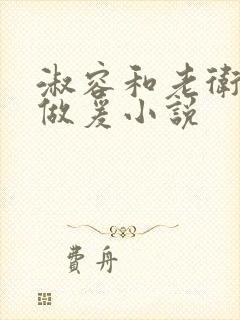 淑容和老衛
做爰小說
費舟